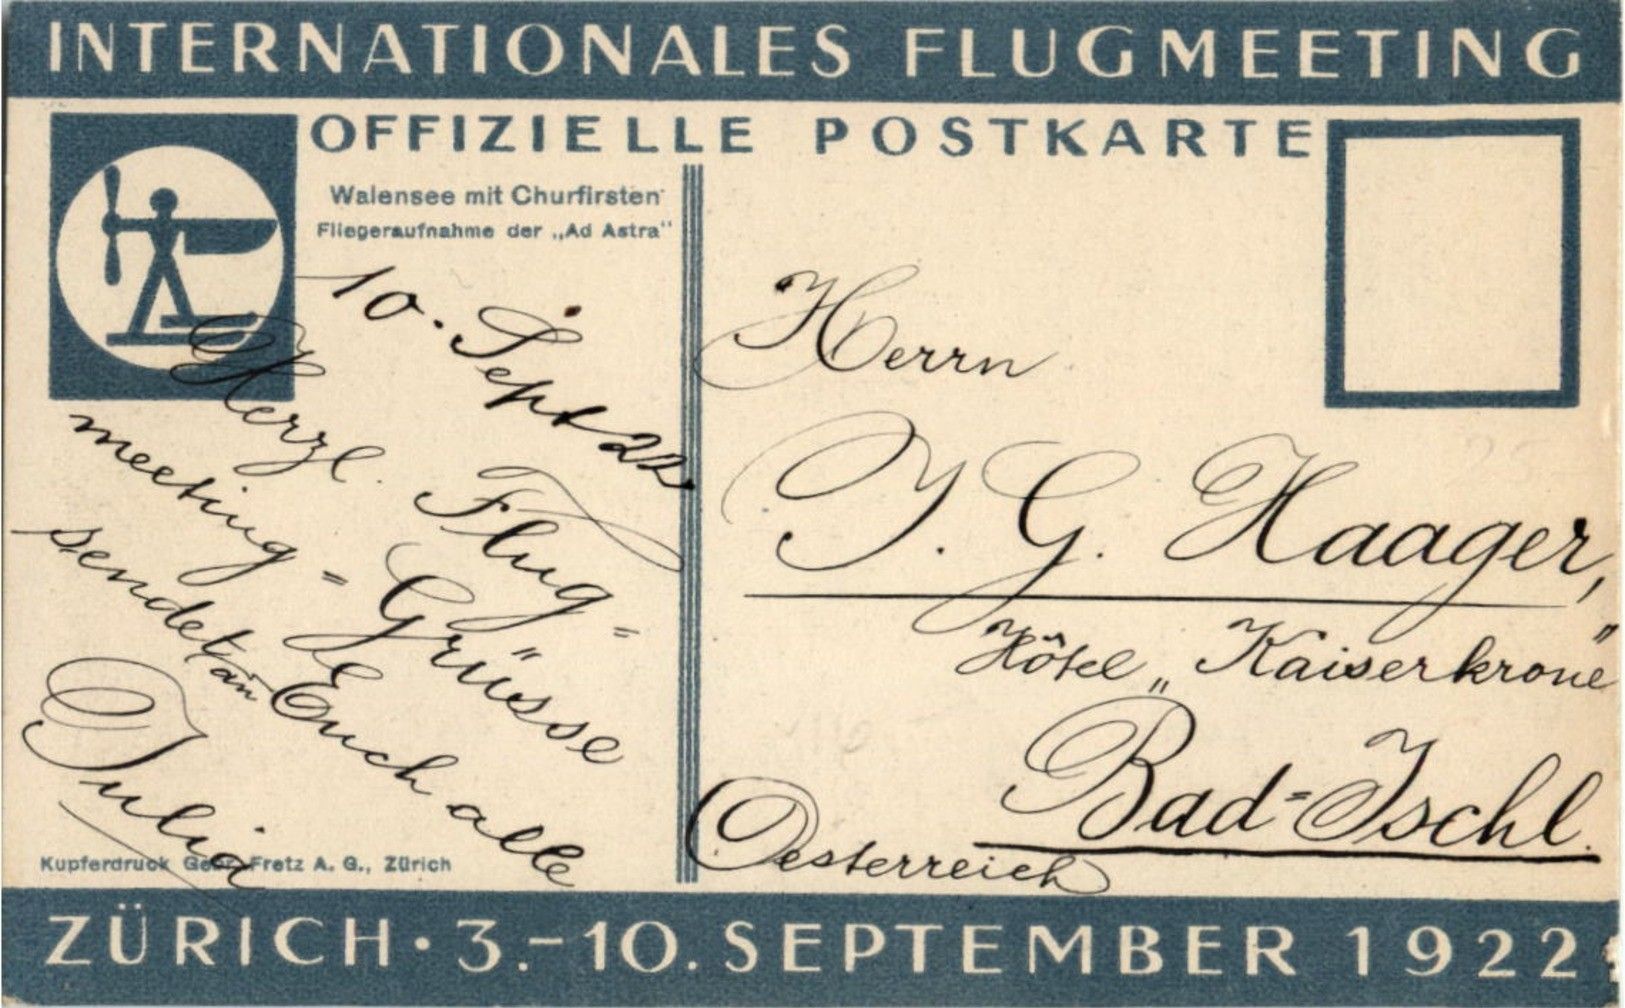 INTERNATIONALES FLUGMEETING
OFFIZIELLE POSTKARTE
Walensee mit Churfirsten
Fliegeraufnahme der „Ad Astra"
10. Sept 22
Herzl. Flug=
meeting=Grüsse
sendet an Euch alle
Julia
Kupferdruck Gebr. Fretz A. G., Zürich
Herrn
J. G. Haager,
Hôtel „Kaiserkrone"
Bad=Ischl.
Oesterreich
ZÜRICH · 3.–10. SEPTEMBER 1922